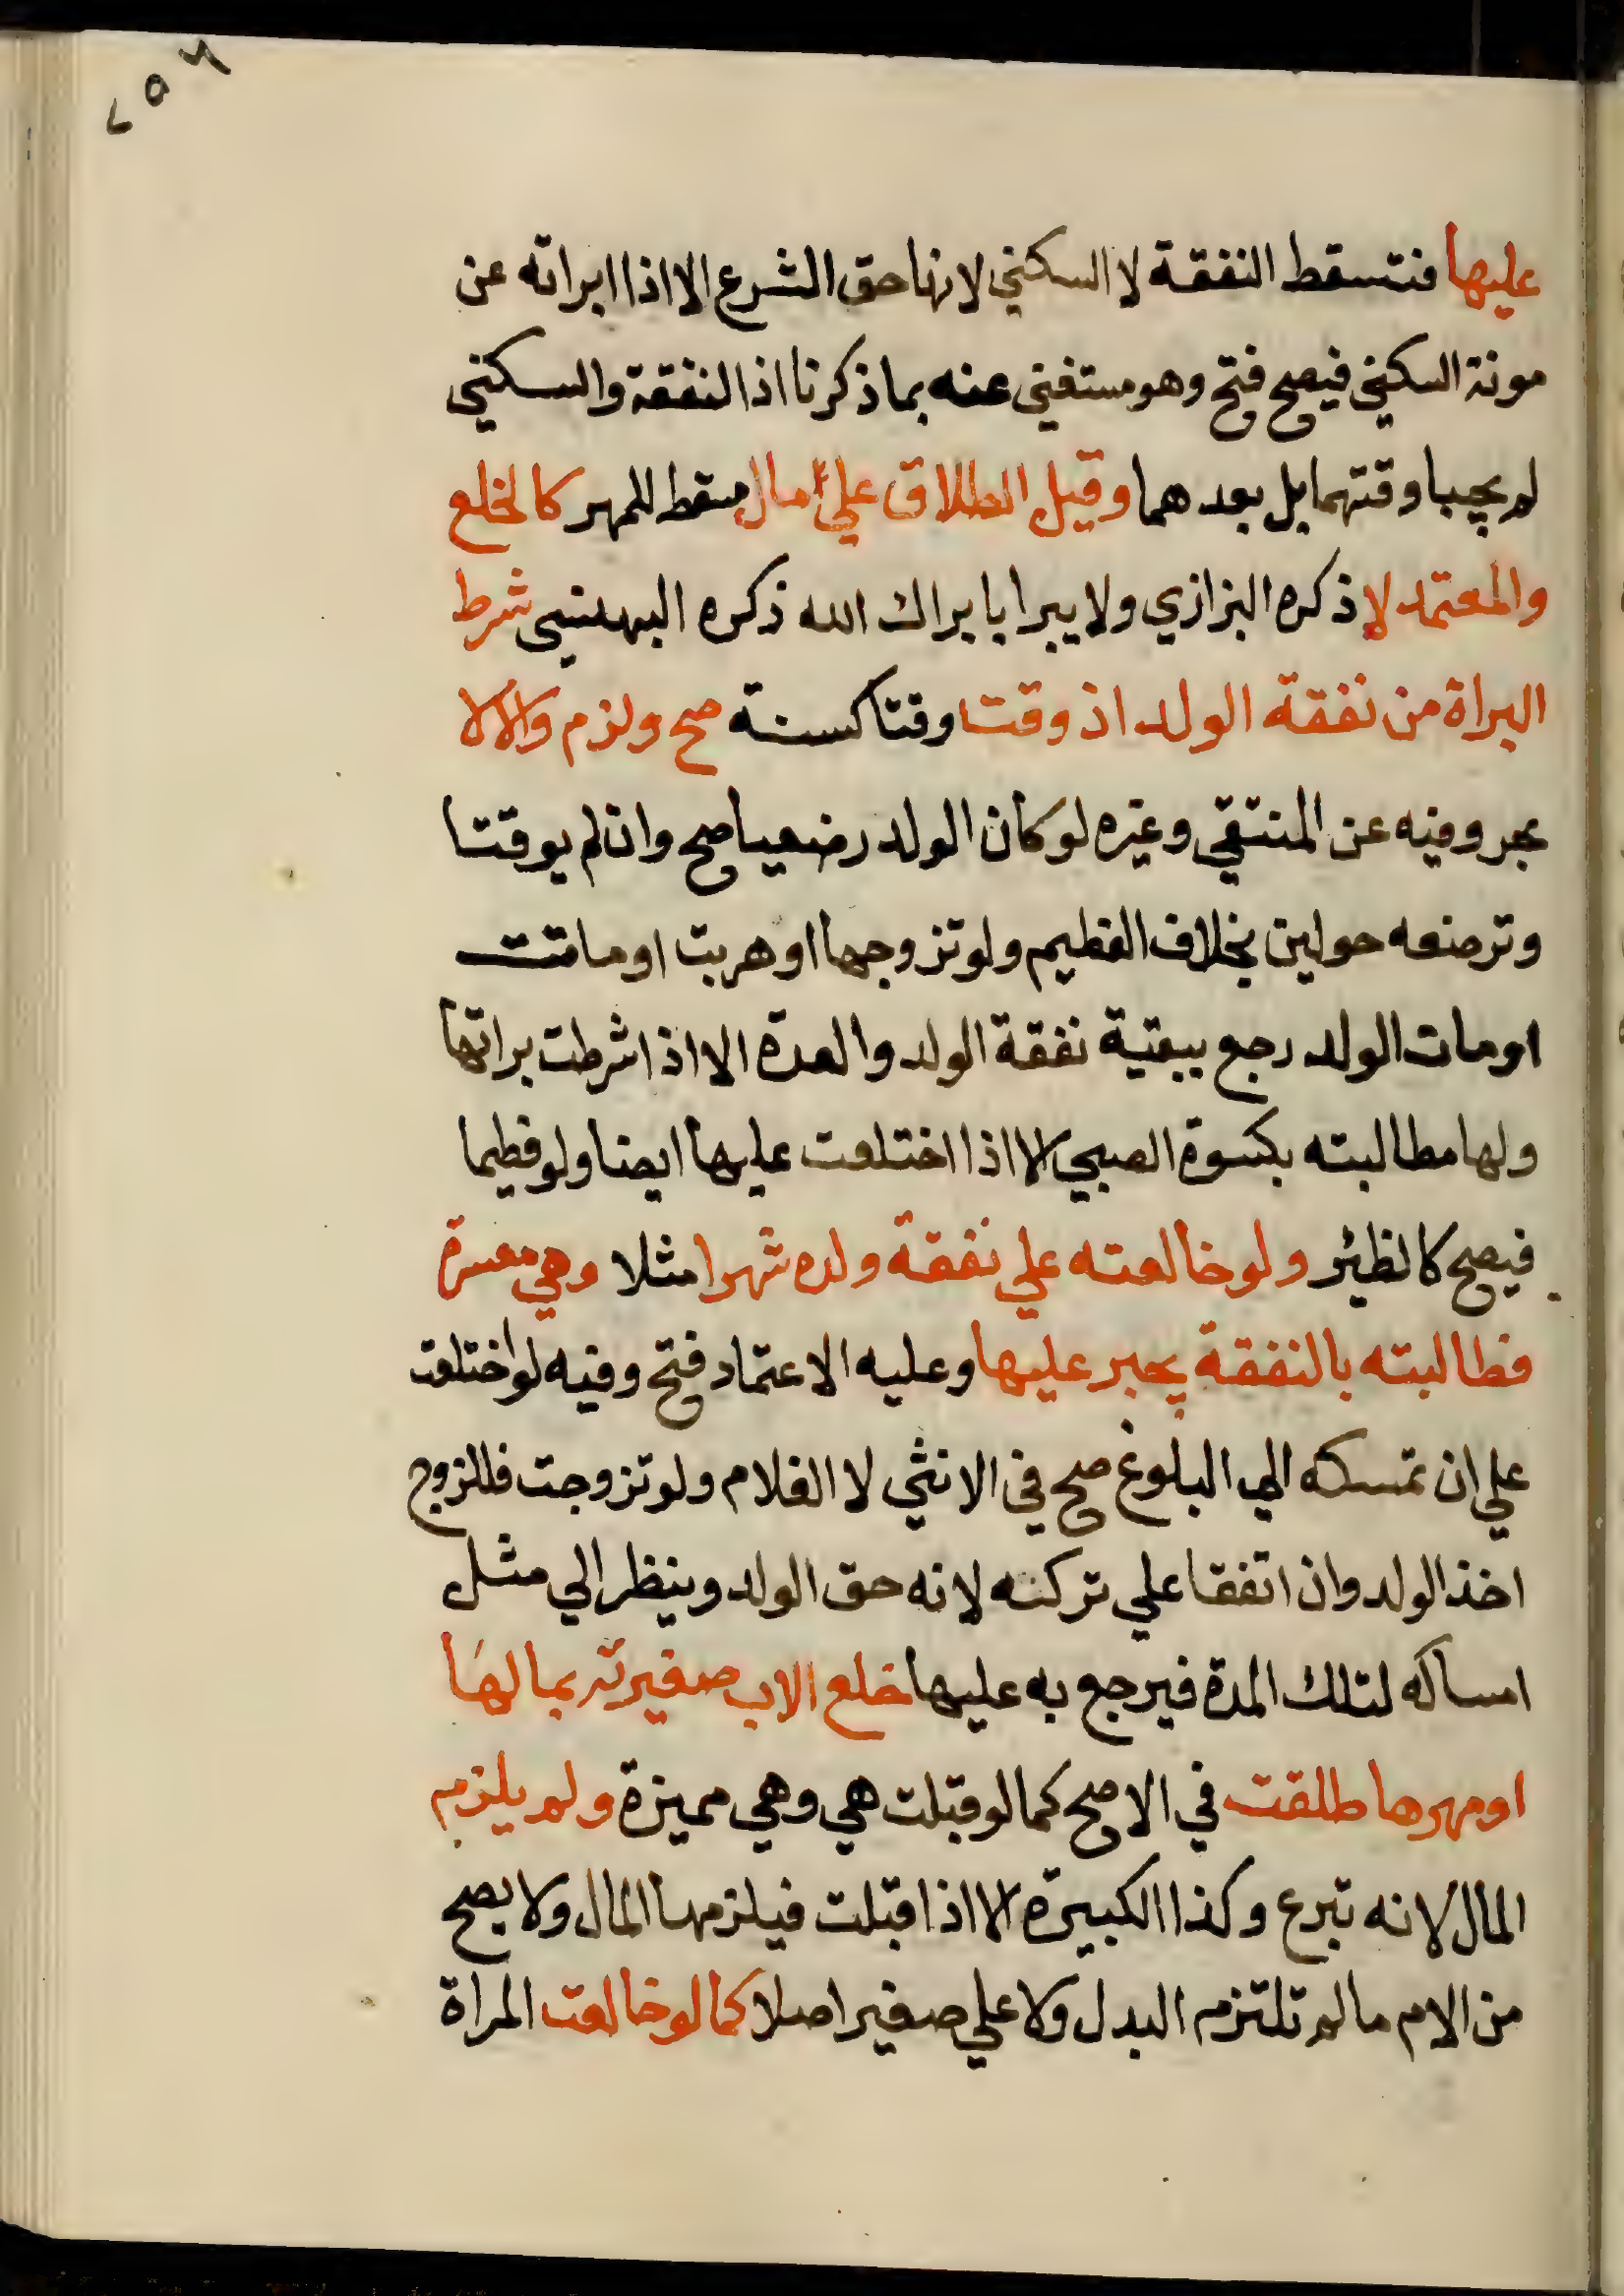 ٢٥٦
عليها فتسقط النفقة لا السكني لانها حق الشرع الا اذا ابراته عن
مونة السكني فيصح فتح وهو مستغني عنه بما ذكرنا اذ النفقة والسكني
لم يجبا وقتهما بل بعدهما وقيل الطلاق علي مال مسقط للمهر كالخلع
والمعتمد لا ذكره البزازي ولا يبرا بابراك الله ذكره البهنسي شرط
البراة من نفقة الولد اذ وقتا وقتا كسنة صح ولزم والا لا
بحر وفيه عن المنتقي وغيره لو كان الولد رضيعا صح وان لم يوقتا
وترضعه حولين بخلاف الفطيم ولو تزوجها او هربت او ماتت
او مات الولد رجع ببقية نفقة الولد والعدة الا اذا شرطت براتها
ولها مطالبته بكسوة الصبي الا اذا اختلعت عليها ايضا ولو فطيما
فيصح كالظئر ولو خالعته علي نفقة ولده شهرا مثلا وهي معسرة
فطالبته بالنفقة يجبر عليها وعليه الاعتماد فتح وفيه لو اختلعت
علي ان تمسكه الي البلوغ صح في الانثي لا الغلام ولو تزوجت فللزوج
اخذ الولد وان اتفقا علي تركنه لانه حق الولد وينظر الي مثل
امساكه لتلك المدة فيرجع به عليها خلع الاب صغيرته بمالها
او مهرها طلقت في الاصح كما لو قبلت هي وهي مميزة ولم يلزم
المال لانه تبرع وكذا الكبيرة الا اذا قبلت فيلزمها المال ولا يصح
من الام مالم تلتزم البدل ولا علي صغير اصلا كما لو خالعت المراة